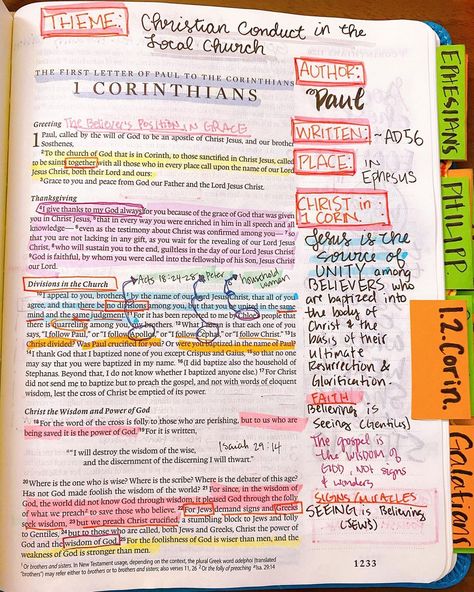 THEME: Christian Conduct in the
Local Church
THE FIRST LETTER OF PAUL TO THE CORINTHIANS
1 CORINTHIANS
Greeting The Believer's Position in GRACE
1 Paul, called by the will of God to be an apostle of Christ Jesus, and our brother
Sosthenes,
2 To the church of God that is in Corinth, to those sanctified in Christ Jesus, called
to be saints together with all those who in every place call upon the name of our Lord
Jesus Christ, both their Lord and ours:
3 Grace to you and peace from God our Father and the Lord Jesus Christ.
Thanksgiving
4 I give thanks to my God always for you because of the grace of God that was given
you in Christ Jesus, 5 that in every way you were enriched in him in all speech and all
knowledge— 6 even as the testimony about Christ was confirmed among you— 7 so
that you are not lacking in any gift, as you wait for the revealing of our Lord Jesus
Christ, 8 who will sustain you to the end, guiltless in the day of our Lord Jesus Christ.
9 God is faithful, by whom you were called into the fellowship of his Son, Jesus Christ
our Lord.
Acts 18:24-28 Peter household woman
Divisions in the Church
10 I appeal to you, brothers, by the name of our Lord Jesus Christ, that all of you
agree, and that there be no divisions among you, but that you be united in the same
mind and the same judgment. 11 For it has been reported to me by Chloe's people that
there is quarreling among you, my brothers. 12 What I mean is that each one of you
says, "I follow Paul," or "I follow Apollos," or "I follow Cephas," or "I follow Christ." 13 Is
Christ divided? Was Paul crucified for you? Or were you baptized in the name of Paul?
14 I thank God that I baptized none of you except Crispus and Gaius, 15 so that no one
may say that you were baptized in my name. 16 (I did baptize also the household of
Stephanas. Beyond that, I do not know whether I baptized anyone else.) 17 For Christ
did not send me to baptize but to preach the gospel, and not with words of eloquent
wisdom, lest the cross of Christ be emptied of its power.
Christ the Wisdom and Power of God
18 For the word of the cross is folly to those who are perishing, but to us who are
being saved it is the power of God. 19 For it is written,
Isaiah 29:14
"I will destroy the wisdom of the wise,
and the discernment of the discerning I will thwart."
20 Where is the one who is wise? Where is the scribe? Where is the debater of this age?
Has not God made foolish the wisdom of the world? 21 For since, in the wisdom of
God, the world did not know God through wisdom, it pleased God through the folly
of what we preach to save those who believe. 22 For Jews demand signs and Greeks
seek wisdom, 23 but we preach Christ crucified, a stumbling block to Jews and folly
to Gentiles, 24 but to those who are called, both Jews and Greeks, Christ the power of
God and the wisdom of God. 25 For the foolishness of God is wiser than men, and the
weakness of God is stronger than men.
1 Or brothers and sisters. In New Testament usage, depending on the context, the plural Greek word adelphoi (translated
"brothers") may refer either to brothers or to brothers and sisters; also verses 11, 26 2 Or the folly of preaching 3 Isa. 29:14
1233
AUTHOR:
Paul
WRITTEN: ~AD56
PLACE: in
Ephesus
CHRIST in
1 CORIN.
Jesus is the
source of
UNITY among
BELIEVERS who
are baptized into
the body of
Christ & the
basis of their
ultimate
Resurrection &
Glorification.
FAITH
Believing is
seeing (Gentiles)
The gospel is
the wisdom of
GOD, NOT signs
& wonders
SIGNS/MIRACLES
SEEING is Believing
(JEWS)
EPHESIANS
PHILIPP
1.2.Corin.
Galatians